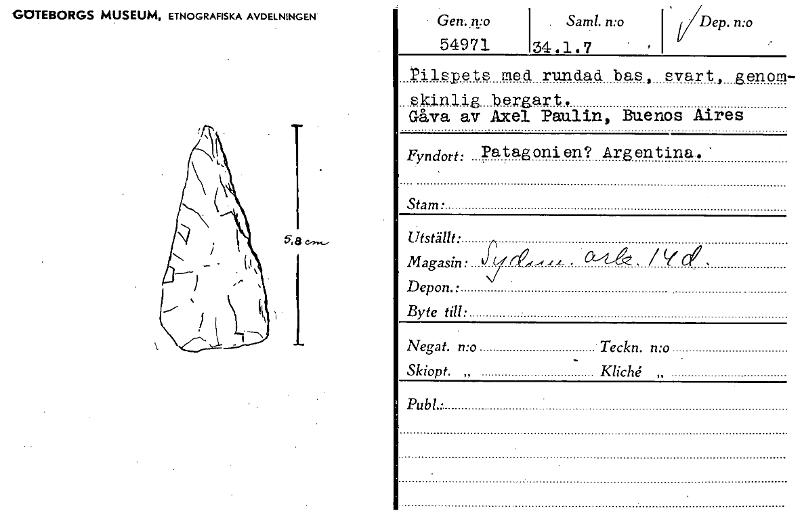 GÖTEBORGS MUSEUM, ETNOGRAFISKA AVDELNINGEN
5,8 cm
Gen. n:o Saml. n:o Dep. n:o
54971 34.1.7
Pilspets med rundad bas, svart, genom-
skinlig bergart.
Gåva av Axel Paulin, Buenos Aires
Fyndort: Patagonien? Argentina.
Stam:
Utställt:
Magasin: Sydam. ark. 14d.
Depon.:
Byte till:
Negat. n:o Teckn. n:o
Skiopt. „ Kliché „
Publ.: